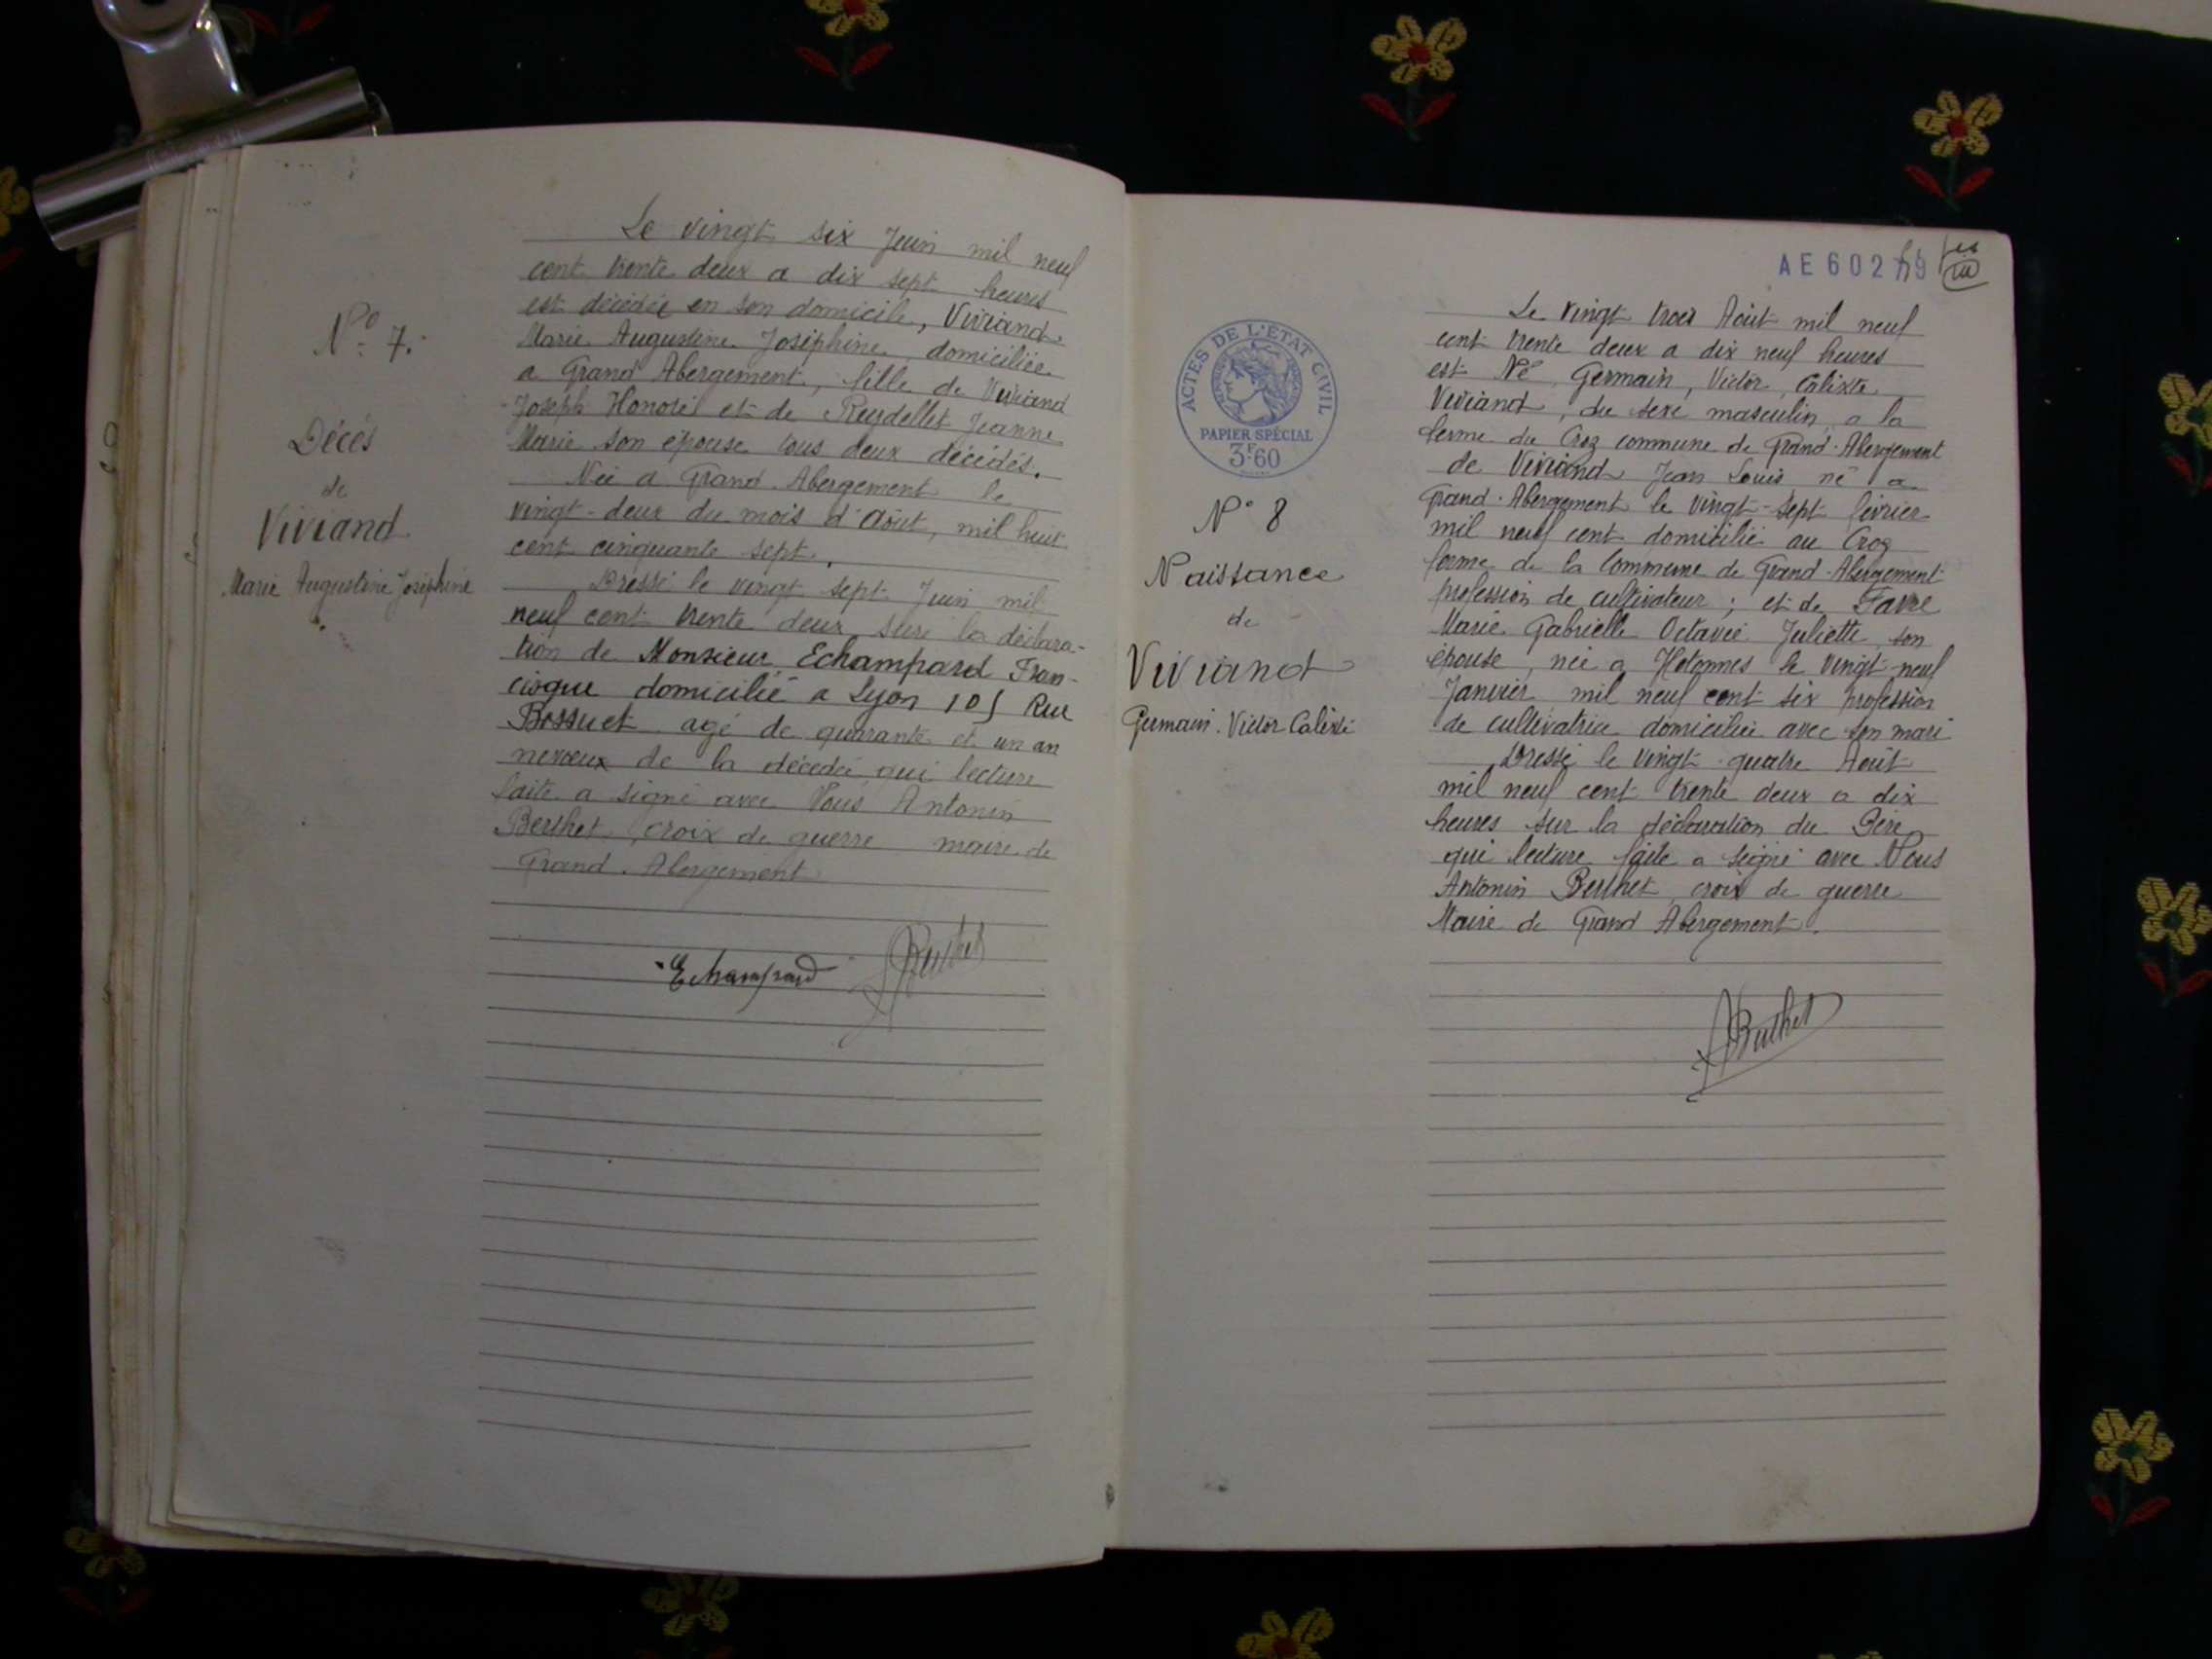 N° 7.
Décès
de
Viviand
Marie Augustine Joséphine
Le vingt six Juin mil neuf
cent trente deux a dix sept heures
est décédée en son domicile, Viviand
Marie Augustine Joséphine domiciliée
a Grand Abergement, fille de Viviand
Joseph Honoré et de Reydellet Jeanne
Marie son épouse tous deux décédés.
Née a Grand Abergement le
vingt-deux du mois d'Août, mil huit
cent cinquante sept.
Dressé le vingt sept Juin mil
neuf cent trente deux sur la déclara-
tion de Monsieur Echampard Fran-
cisque domicilié a Lyon 105 Rue
Bossuet agé de quarante et un an
neveux de la décédée qui lecture
faite a signé avec Nous Antonin
Berthet, croix de guerre maire de
Grand-Abergement
Echampard ABerthet
AE602
ACTES DE L'ÉTAT CIVIL
PAPIER SPÉCIAL
3F.60
N° 8
Naissance
de
Viviand
Germain Victor Calixte
Le vingt trois Août mil neuf
cent trente deux a dix neuf heures
est Né Germain, Victor, Calixte
Viviand, du sexe masculin a la
ferme du Croz commune de Grand-Abergement
de Viviand Jean Louis né a
Grand-Abergement le vingt-sept février
mil neuf cent domicilié au Croz
ferme de la Commune de Grand-Abergement
profession de cultivateur ; et de Favre
Marie Gabrielle Octavie Juliette son
épouse, née a Hotonnes le vingt-neuf
Janvier mil neuf cent six profession
de cultivatrice domiciliée avec son mari
Dressé le vingt-quatre Août
mil neuf cent trente deux a dix
heures sur la déclaration du Père
qui lecture faite a signé avec Nous
Antonin Berthet croix de guerre
Maire de Grand Abergement.
ABerthet